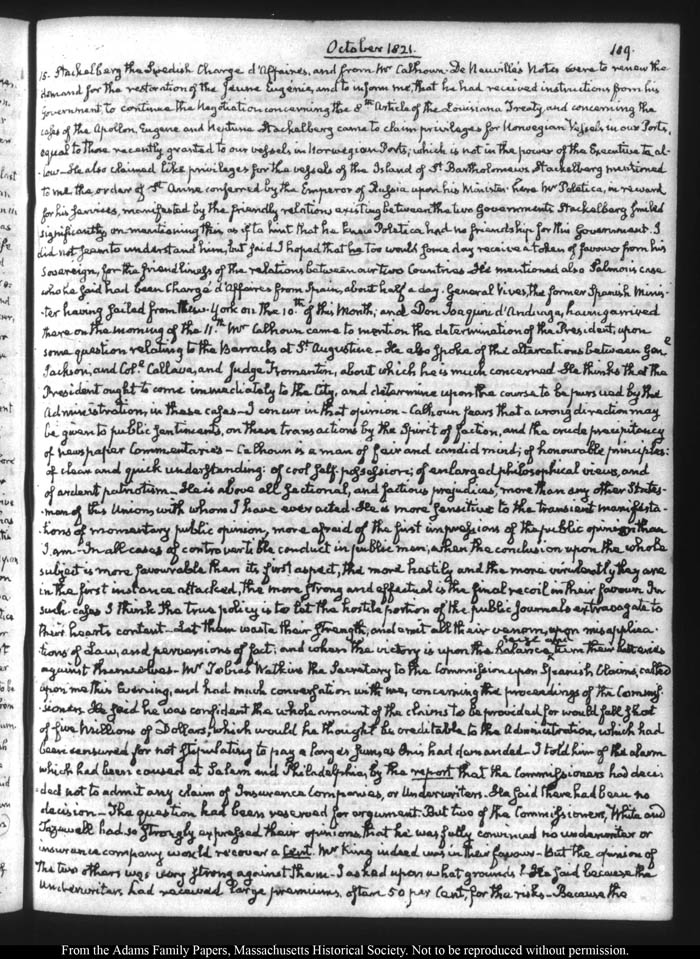 October 1821.
109.
15. Stackelberg the Swedish Charge d'Affaires, and from Mr Calhoun. De Neuville's Notes were to renew the
demand for the restoration of the Jeune Eugénie, and to inform me, that he had received instructions from his
Government, to continue the Negotiation concerning the 8th Article of the Louisiana Treaty, and concerning the
cases of the Apollon, Eugene and Neptune. Stackelberg came to claim privileges for Norwegian Vessels in our Ports,
equal to those recently granted to our vessels in Norwegian Ports; which is not in the power of the Executive to al-
-low. He also claimed like privileges for the vessels of the Island of St Bartholomews. Stackelberg mentioned
to me the order of St Anne conferred by the Emperor of Russia upon his Minister here Mr Poletica, in reward
for his services, manifested by the friendly relations existing between the two Governments. Stackelberg smiled
significantly on mentioning this, as if to hint that he knew Poletica had no friendship for this Government. I
did not seem to understand him, but said I hoped that he too would some day receive a token of favour from his
Sovereign, for the friendliness of the relations between our two Countries. He mentioned also Salmon's case
who he said had been Chargé d'Affaires from Spain, about half a day. General Vives, the former Spanish Minis-
-ter having sailed from New-York on the 10th of this Month; and Don Joaquin d'Anduaga, having arrived
there on the morning of the 11th. Mr Calhoun came to mention the determination of the President, upon
some question relating to the Barracks at St Augustine - He also spoke of the altercations between Genl
Jackson, and Coll Callava, and Judge Fromentin, about which he is much concerned. He thinks that the
President ought to come immediately to the City, and determine upon the course to be pursued by the
Administration, in these cases - I concur in that opinion - Calhoun fears that a wrong direction may
be given to public sentiments, on these transactions by the Spirit of faction, and the crude precipitancy
of newspaper Commentaries - Calhoun is a man of fair and candid mind; of honourable principles:
of clear and quick understanding: of cool self-possession; of enlarged philosophical views, and
of ardent patriotism. He is above all sectional, and factious prejudices, more than any other States-
-man of this Union, with whom I have ever acted. He is more sensitive to the transient manifesta-
-tions of momentary public opinion, more afraid of the first impressions of the public opinion than
I am - In all cases of controvertible conduct in public men, when the conclusion upon the whole
subject is more favourable than its first aspect, the more hastily and the more virulently they are
in the first instance attacked, the more strong and effectual is the final recoil in their favour. In
such cases I think the true policy is to let the hostile portion of the public Journals extravagate to
their hearts content - Let them waste their strength, and emit all their venom, upon misapplica-
-tions of Law, and perversions of fact; and when the victory is upon the balance, seize and turn their batteries
against themselves - Mr Tobias Watkins the Secretary to the Commission upon Spanish Claims, called
upon me this Evening, and had much conversation with me, concerning the proceedings of the Commis-
-sioners. He said he was confident the whole amount of the claims to be provided for would fall short
of five Millions of Dollars, which would he thought be creditable to the Administration, which had
been censured for not stipulating to pay a larger sum as Onis had demanded - I told him of the alarm
which had been caused at Salem and Philadelphia, by the report that the Commissioners had deci-
-ded not to admit any claim of Insurance Companies, or Underwriters. He said there had been no
decision - The question had been reserved for argument. But two of the Commissioners, White and
Tazewell had so strongly expressed their opinions, that he was fully convinced no underwriter or
insurance company would recover a Cent. Mr King indeed was in their favour - But the opinion of
the two others was very strong against them - I asked upon what grounds? He said because the
Underwriters had received large premiums, often 50 per Cent, for the risks - Because the
From the Adams Family Papers, Massachusetts Historical Society. Not to be reproduced without permission.